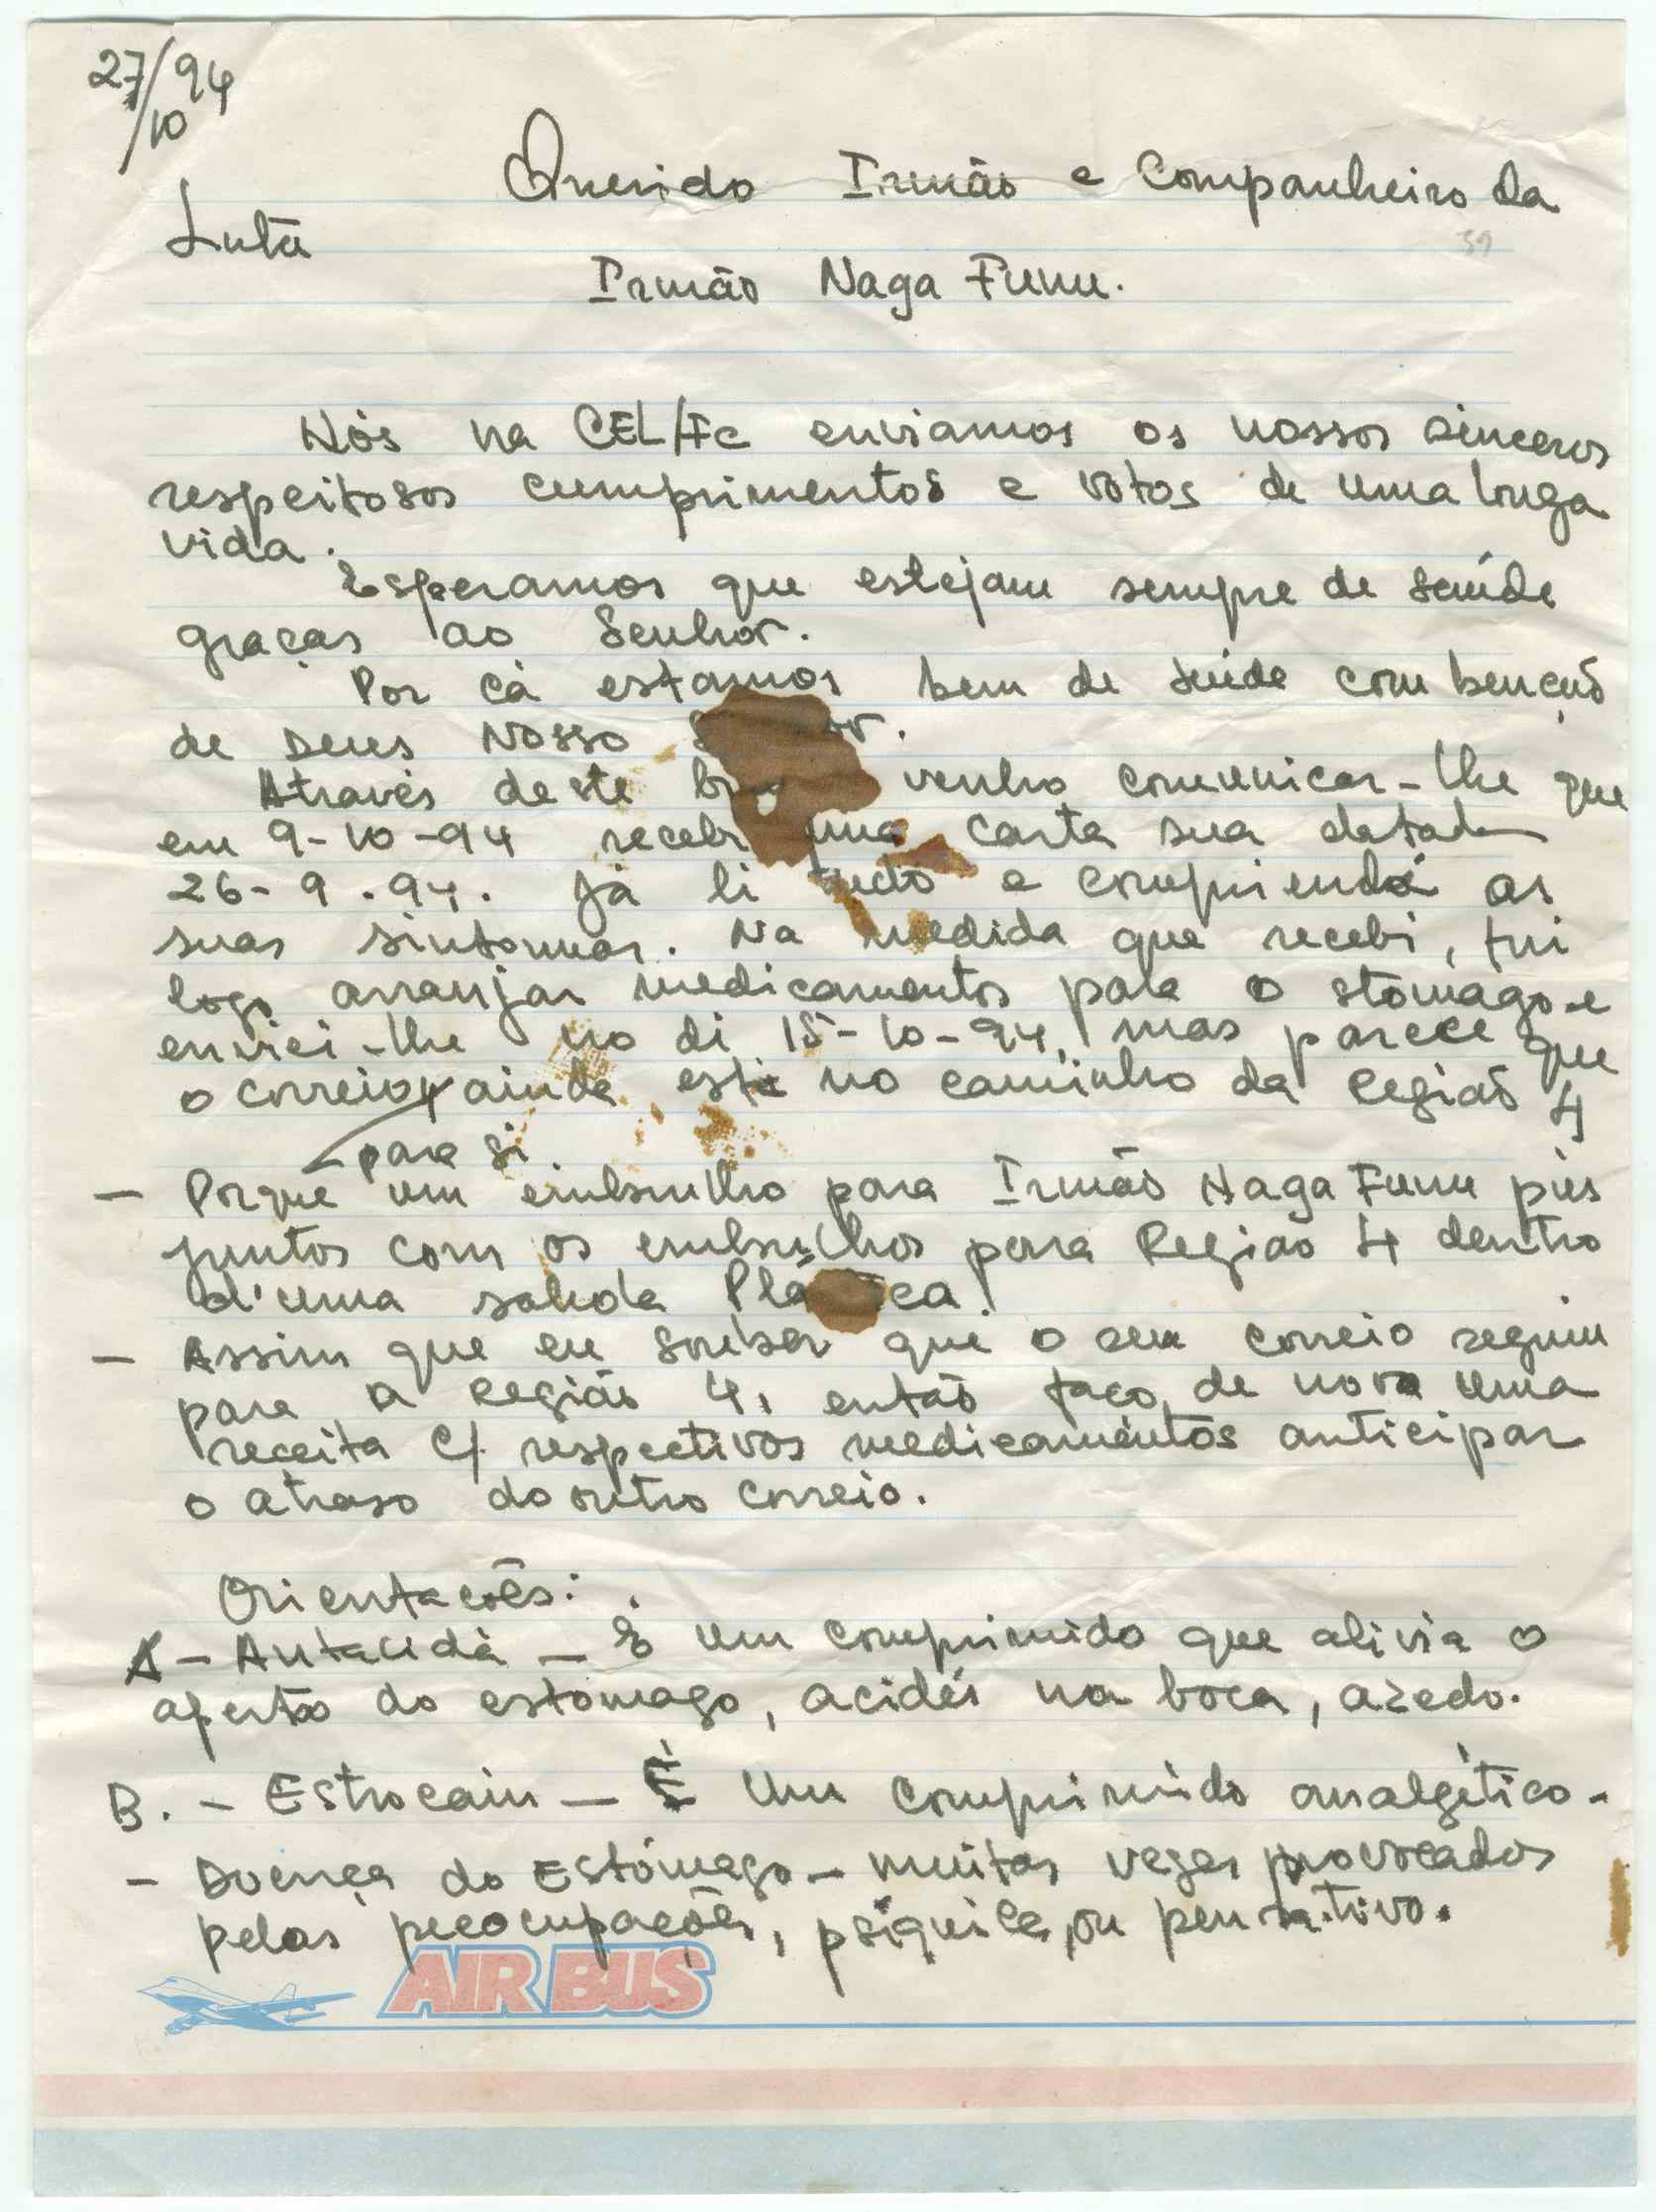 27/10/94
Querido Irmão e Companheiro da
Luta
39
Irmão Naga Funu.
Nós na CEL/FC enviamos os nossos sinceros
respeitosos cumprimentos e votos de uma longa
vida.
Esperamos que estejam sempre de saúde
graças ao Senhor.
Por cá estamos bem de saúde com benção
de Deus Nosso
Através deste venho comunicar-lhe que
em 9-10-94 recebi uma carta sua datada
26-9.94. Já li tudo e compriendi as
suas sintomas. Na medida que recebi, fui
logo arranjar medicamentos para o stomago e
enviei-lhe no di 15-10-94, mas parece que
o correio ainda está no caminho da Região 4
para si
- Porquê um embrulho para Irmão Naga Funu pús
juntos com os embrulhos para Região 4 dentro
d'uma sakola
- Assim que eu souber que o seu correio seguiu
para a Região 4, então faço de novo uma
receita c/ respectivos medicamentos anticipar
o atraso do outro correio.
Orientacões:
A - Antacida - É um comprimido que alivia o
aperto do estomago, acidés na boca, azedo.
B. - Estrocain - É um comprimido analgético -
- Doença do Estómago - muitas vezes provocados
pelas preocupações, psiquica, ou pensativo.
AIR BUS